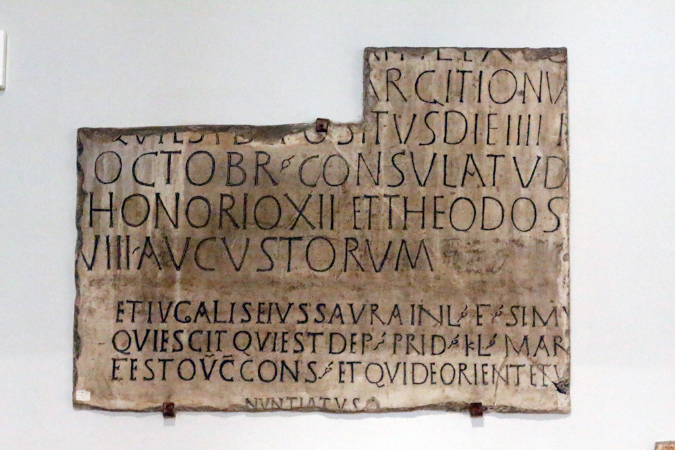 ARCITIONV
QVIEST DEPOSITVSDIEIIII
OCTOBR CONSVLATVD
HONORIOXII ETTHEODOS
VIII AVCVSTORVM
ETIVGALISEIVSSAVRAINL E SIMV
QVIESCIT QVIESTDEP PRID KL MAR
FESTOVC̅CONS ETQVIDEORIENTE
NVNTIATVS